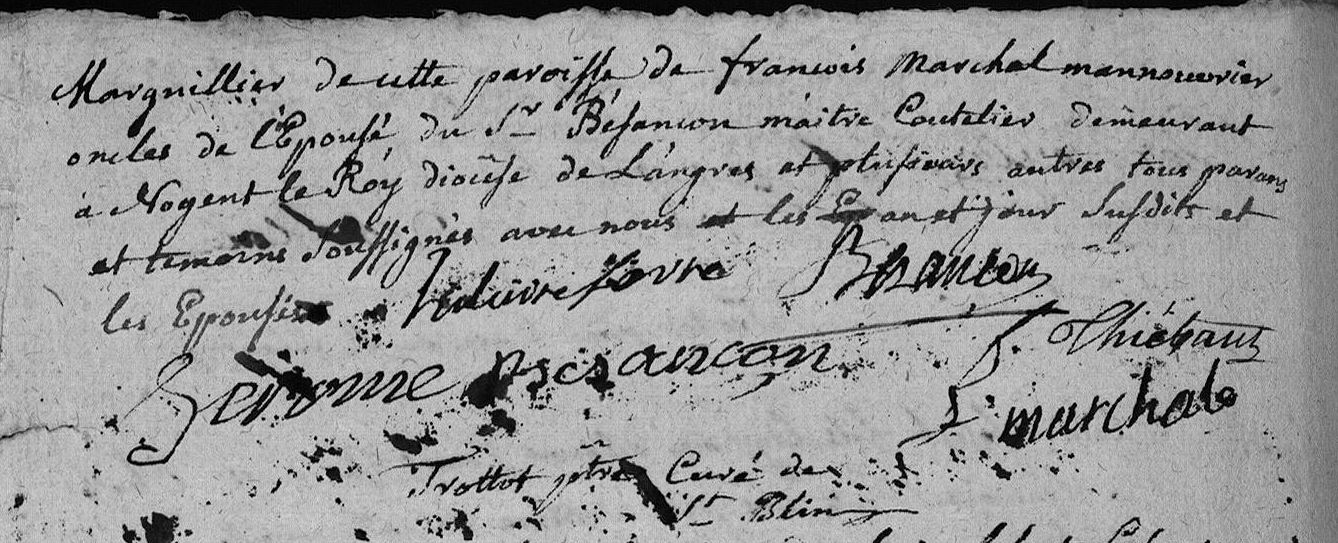 Marguillier de cette paroisse de françois Marchal mannouvrier
oncles de l'Epouse, du Sr Bésancon maitre Coutelier demeurant
à Nogent le Roy diocèse de Langres et plusieurs autres tous parans
et temoins soussignés avec nous et les an et jour susdits et
les Epousés
Besancon
Jerome Besancon
Thiébaut
F. marchal
Trottot ptre Curé de
St Blin